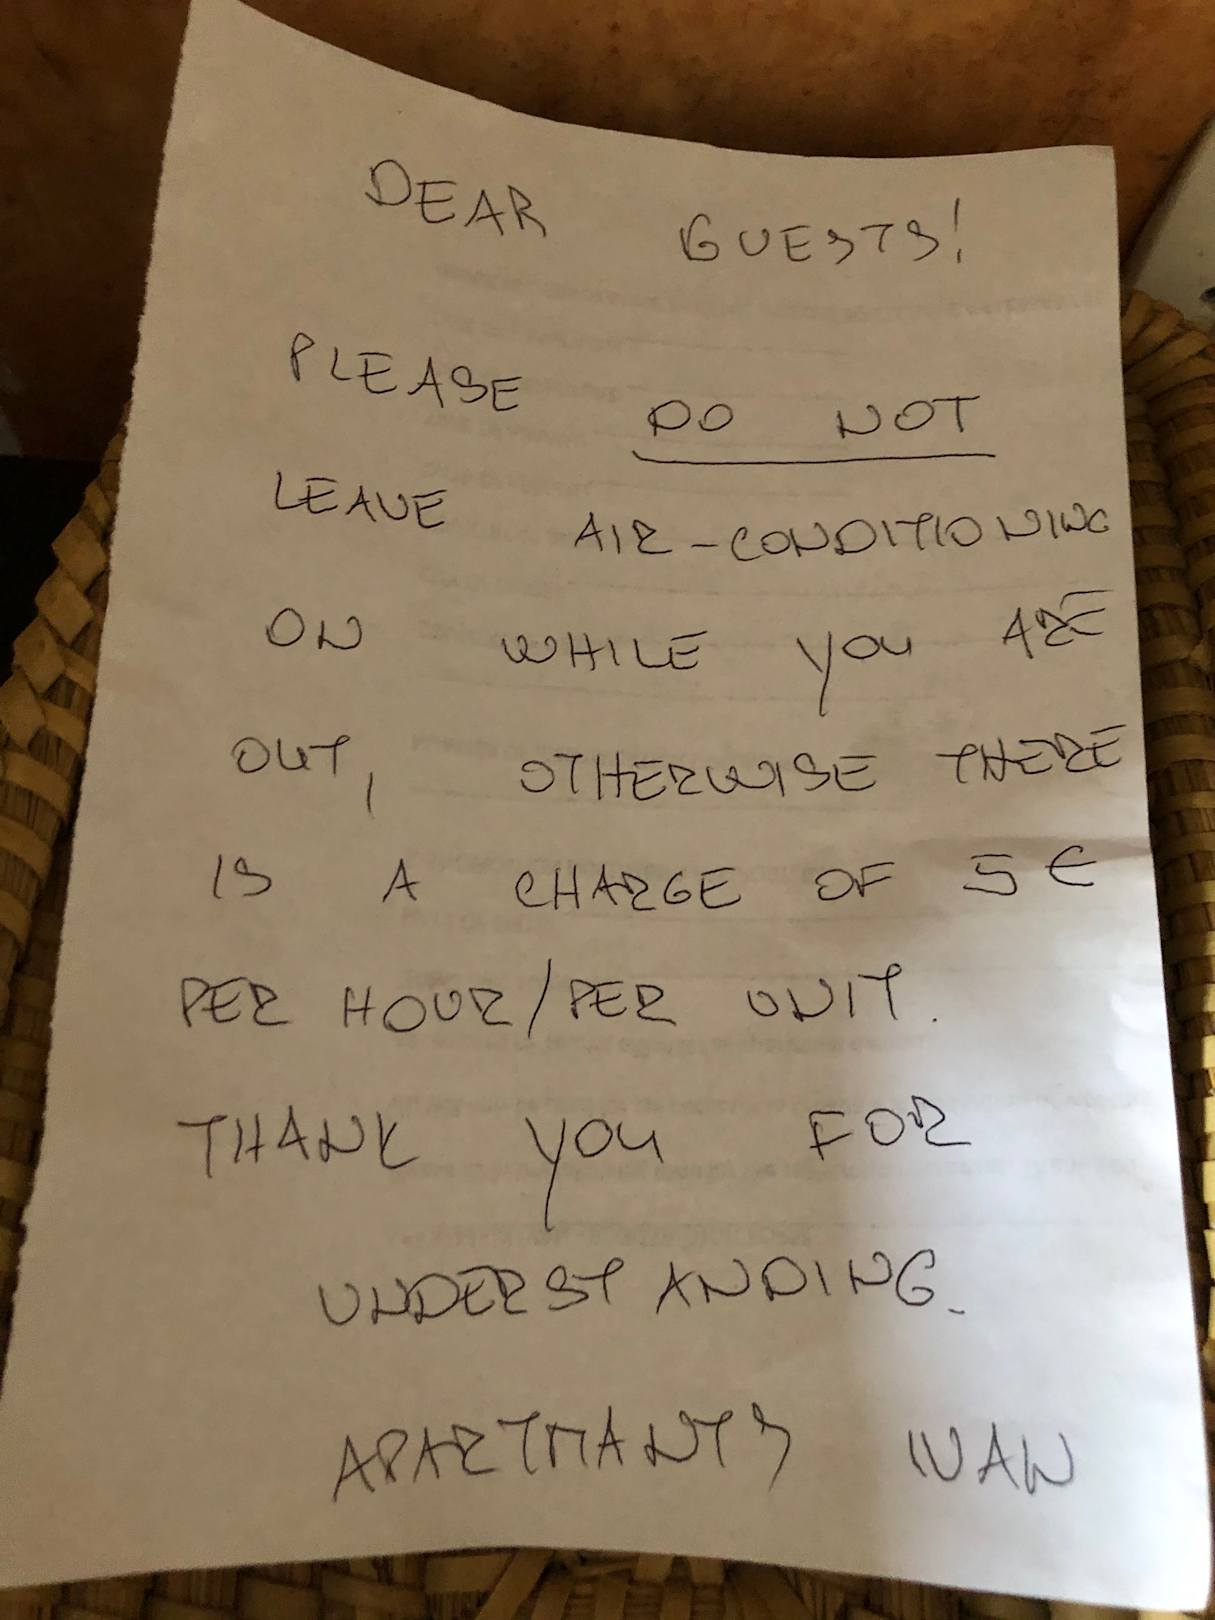 DEAR GUESTS!
PLEASE DO NOT
LEAVE AIR-CONDITIONING
ON WHILE YOU ARE
OUT, OTHERWISE THERE
IS A CHARGE OF 5 €
PER HOUR/PER UNIT.
THANK YOU FOR
UNDERSTANDING.
APARTMANTS IVAN